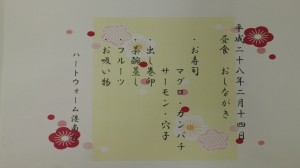 平成二十八年二月十四日
昼食　おしながき
・お寿司
マグロ・カンパチ
サーモン・穴子
・出し巻卵
・茶碗蒸し
・フルーツ
・お吸い物
ハートウォーム港南